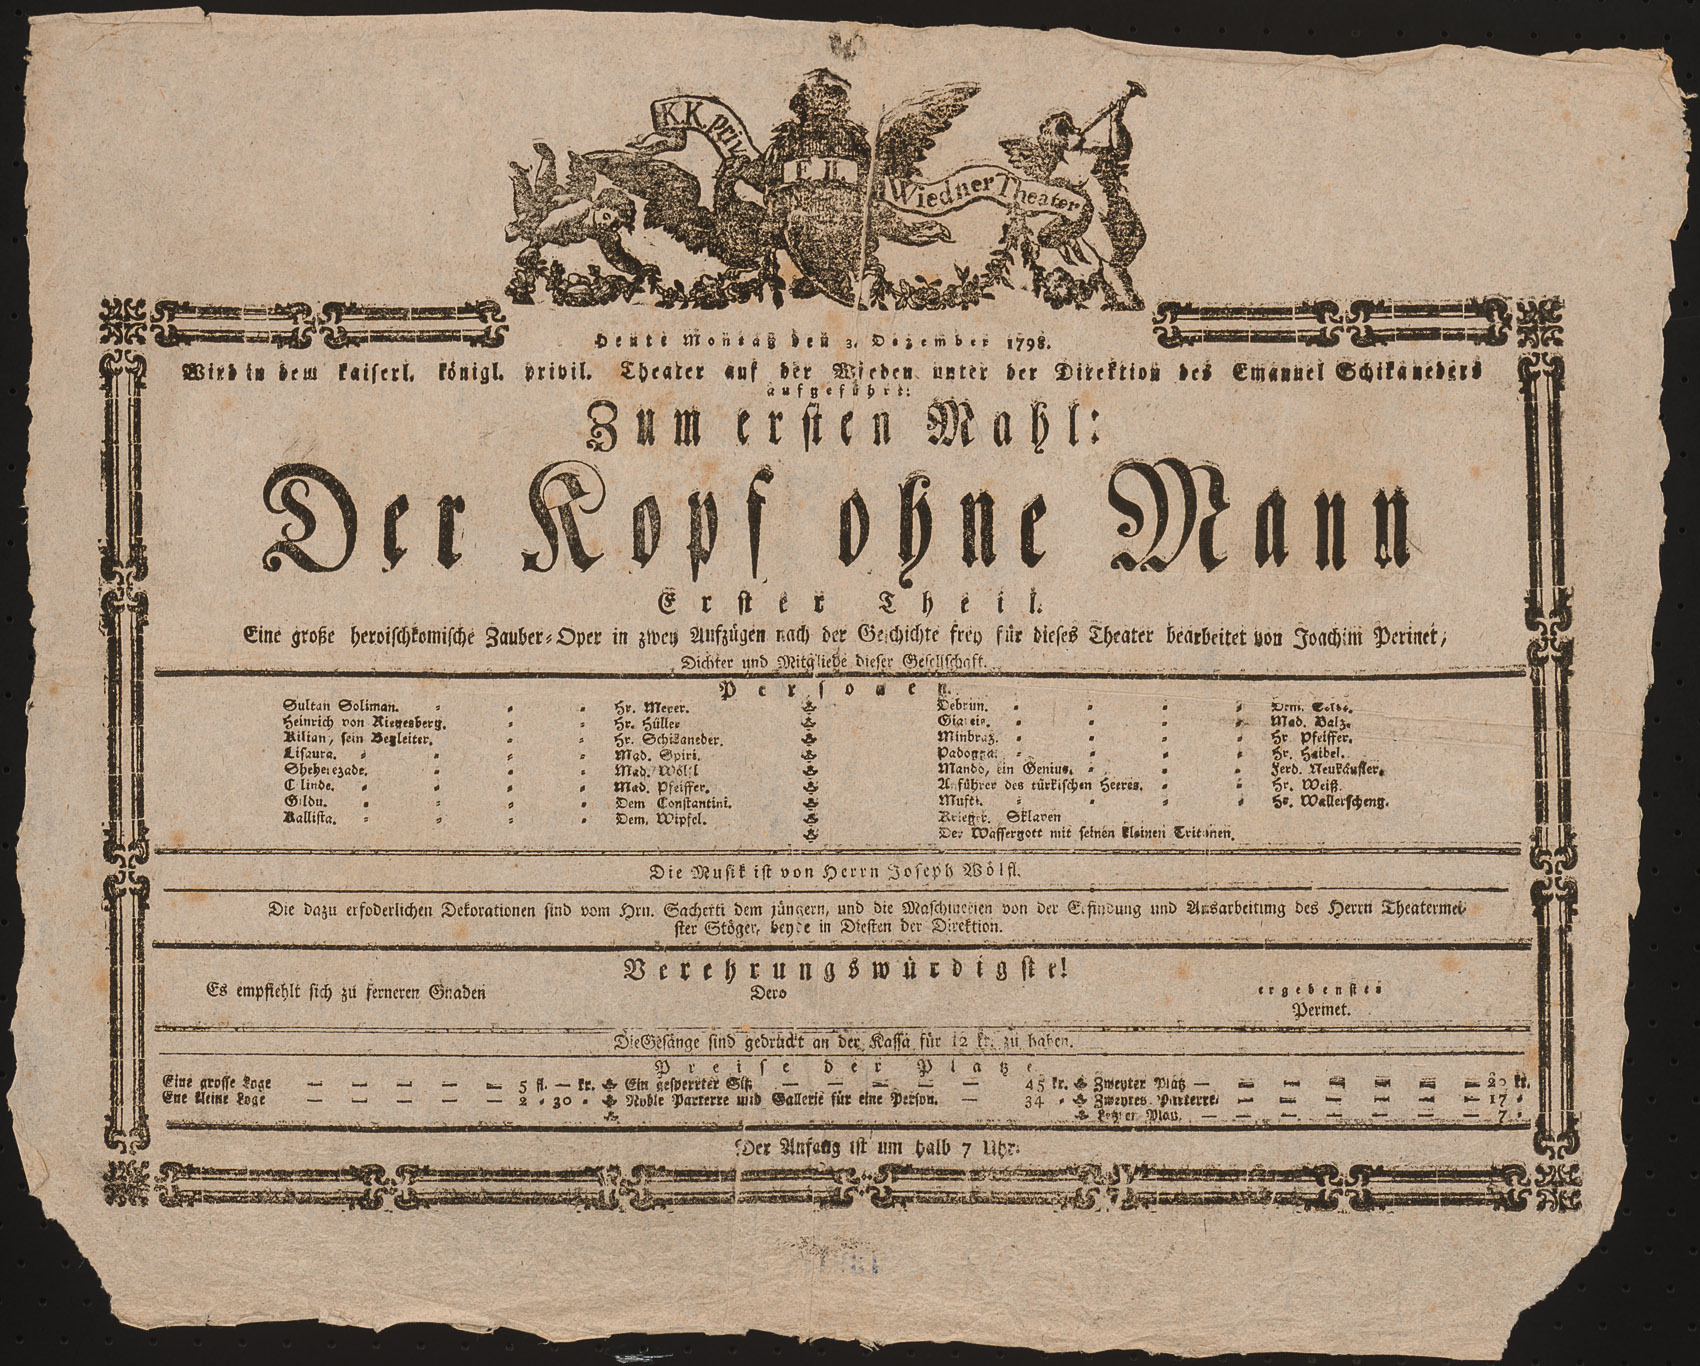 K.K. priv
E. II.
Wiedner Theater
Heute Montag den 3. Dezember 1798.
Wird in dem kaiserl. königl. privil. Theater auf der Wieden unter der Direktion des Emanuel Schikaneders
aufgeführt:
Zum ersten Mahl:
Der Kopf ohne Mann
Erster Theil.
Eine große heroischkomische Zauber-Oper in zwey Aufzügen nach der Geschichte frey für dieses Theater bearbeitet von Joachim Perinet,
Dichter und Mitgliede dieser Gesellschaft.
Personen.
Sultan Soliman. - - - Hr. Meyer.
Heinrich von Riegesberg. - - Hr. Hüller
Kilian, sein Begleiter. - - Hr. Schikaneder.
Lisaura. - - - Mad. Spiri.
Sheherezade. - - - Mad. Wölfl
C linde. - - - Mad. Pfeiffer.
Gildu. - - - Dem Constantini.
Kallista. - - - Dem. Wipfel.
Debrun. - - - - Dem.
- - - - Mad. Balz.
Minbraz. - - - - Hr. Pfeiffer.
Padogga. - - - - Hr. Haibel.
Mando, ein Genius. - - - Ferd. Neukäufler.
Anführer des türkischen Heeres. - - Hr. Weiß.
Mufti. - - - - Hr. Wallerscheng.
Krieger. Sklaven
Der Wassergott mit seinen kleinen Tritonen.
Die Musik ist von Herrn Joseph Wölfl.
Die dazu erfoderlichen Dekorationen sind vom Hrn. Sachetti dem jüngern, und die Maschinerien von der Erfindung und Ausarbeitung des Herrn Theatermei-
ster Stöger, beyde in Diesten der Direktion.
Verehrungswürdigste!
Es empfiehlt sich zu ferneren Gnaden Dero ergebenster
Perinet.
Die Gesänge sind gedruckt an der Kassa für 12 kr. zu haben.
Preise der Plätze
Eine grosse Loge — — — — — 5 fl. — kr.
Ene kleine Loge — — — — — 2 - 30 -
Ein gesperrter Sitz — — — — — 45 kr.
Noble Parterre und Gallerie für eine Person. — 34 -
Zweyter Platz — — — — — — — — 20 kr.
Zweytes Parterre — — — — — — — 17 -
Letzter Platz. — — — — — — — — 7 -
Der Anfang ist um halb 7 Uhr.